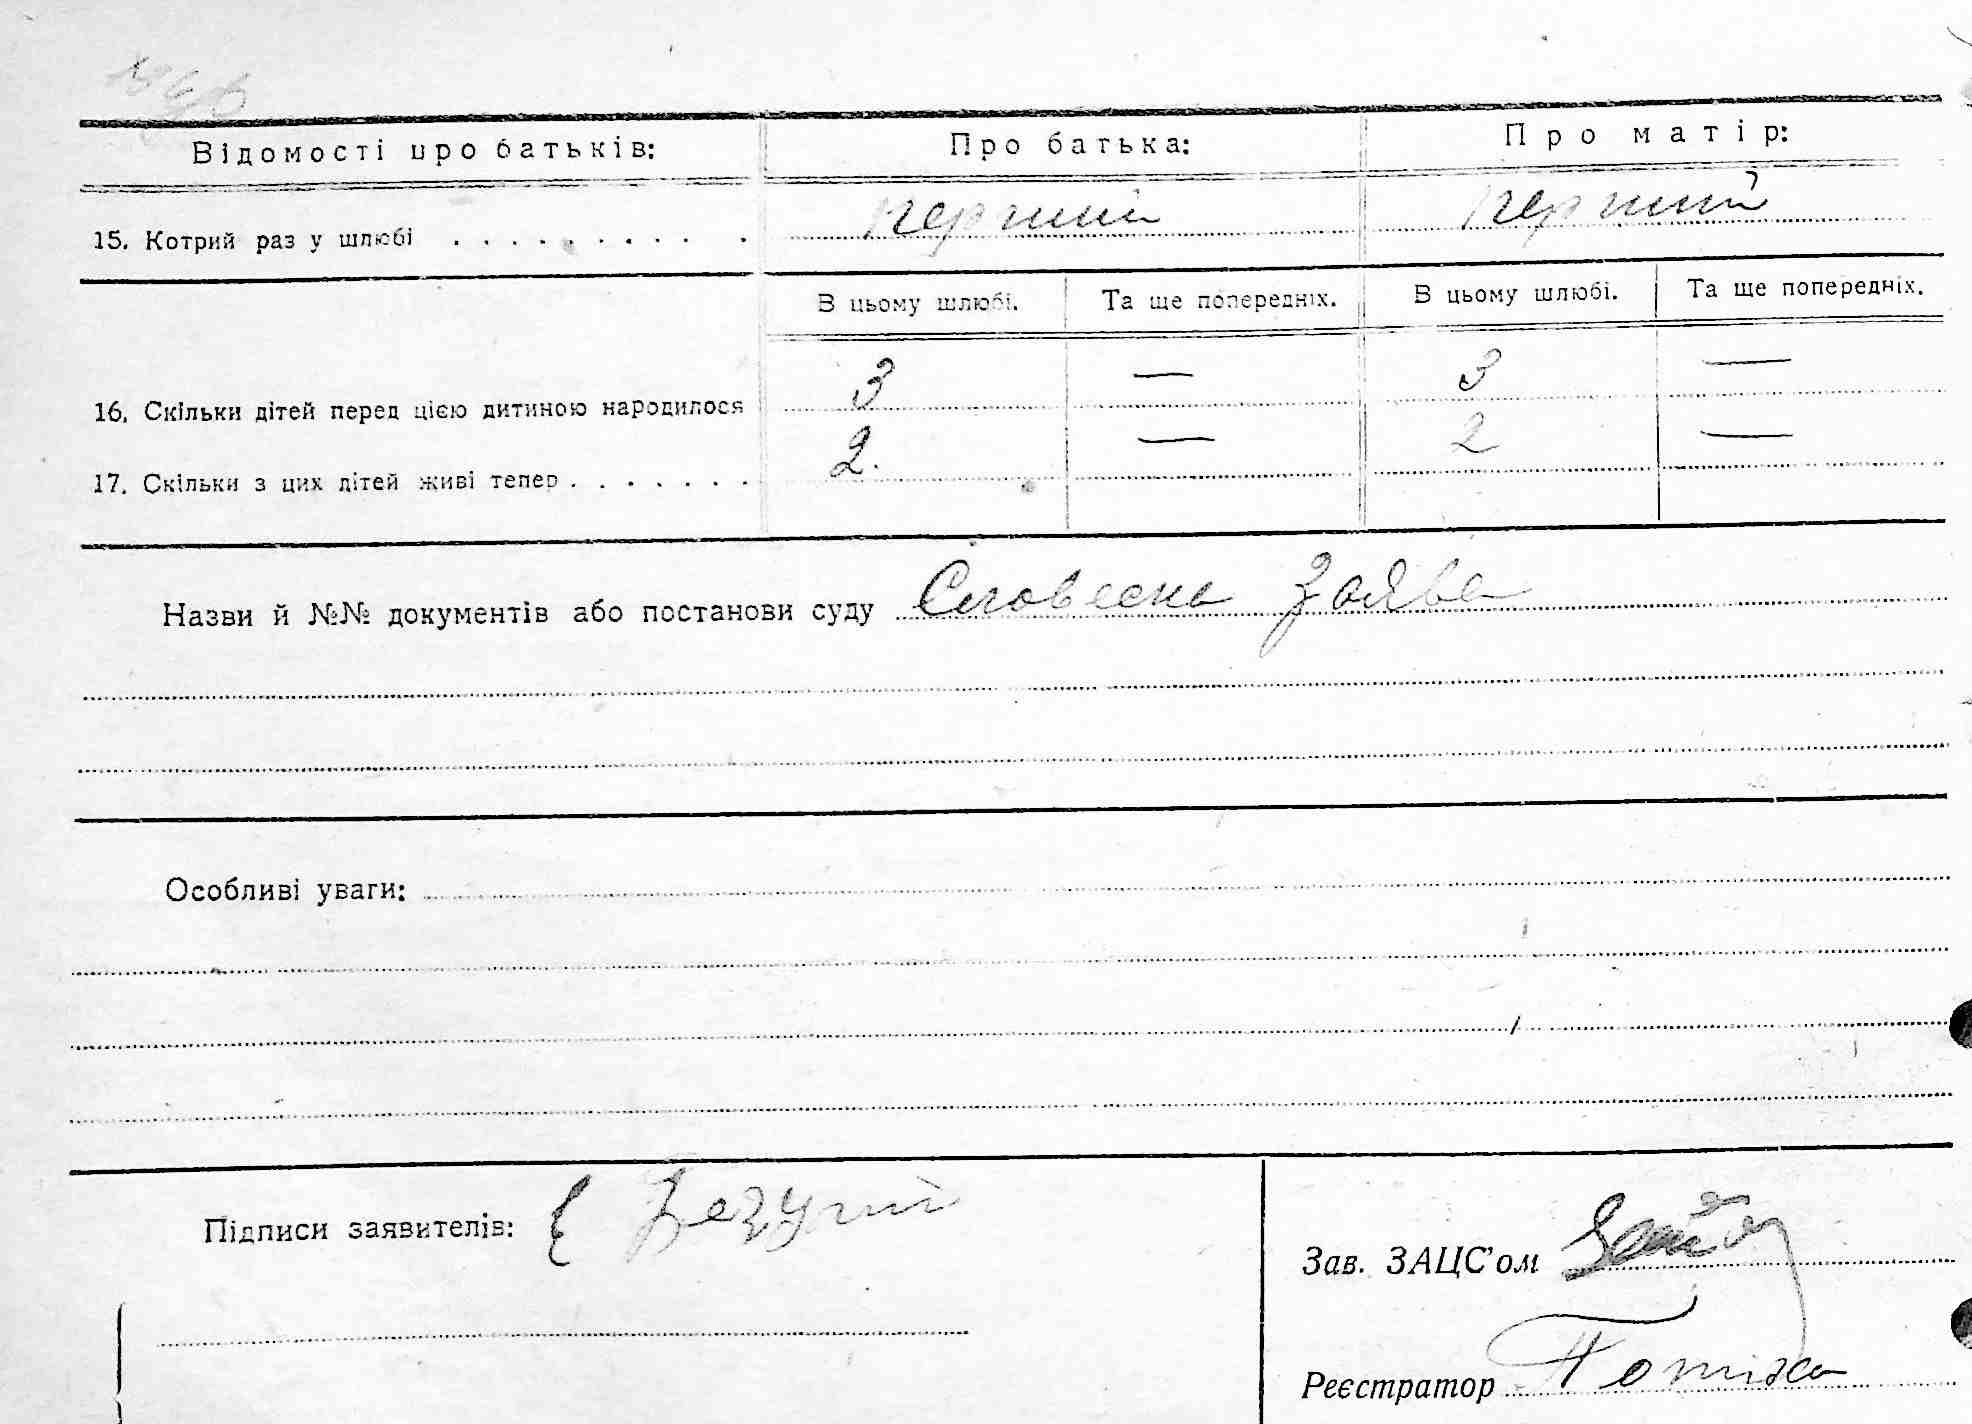 Відомості про батьків: Про батька: Про матір:
15. Котрий раз у шлюбі . . . . . . . . . перший перший
В цьому шлюбі. Та ще попередніх. В цьому шлюбі. Та ще попередніх.
16. Скільки дітей перед цією дитиною народилося 3 — 3 —
17. Скільки з цих дітей живі тепер . . . . . . . 2. — 2 —
Назви й №№ документів або постанови суду Словесна заява
Особливі уваги:
Підписи заявителів:
Зав. ЗАЦС'ом
Реєстратор